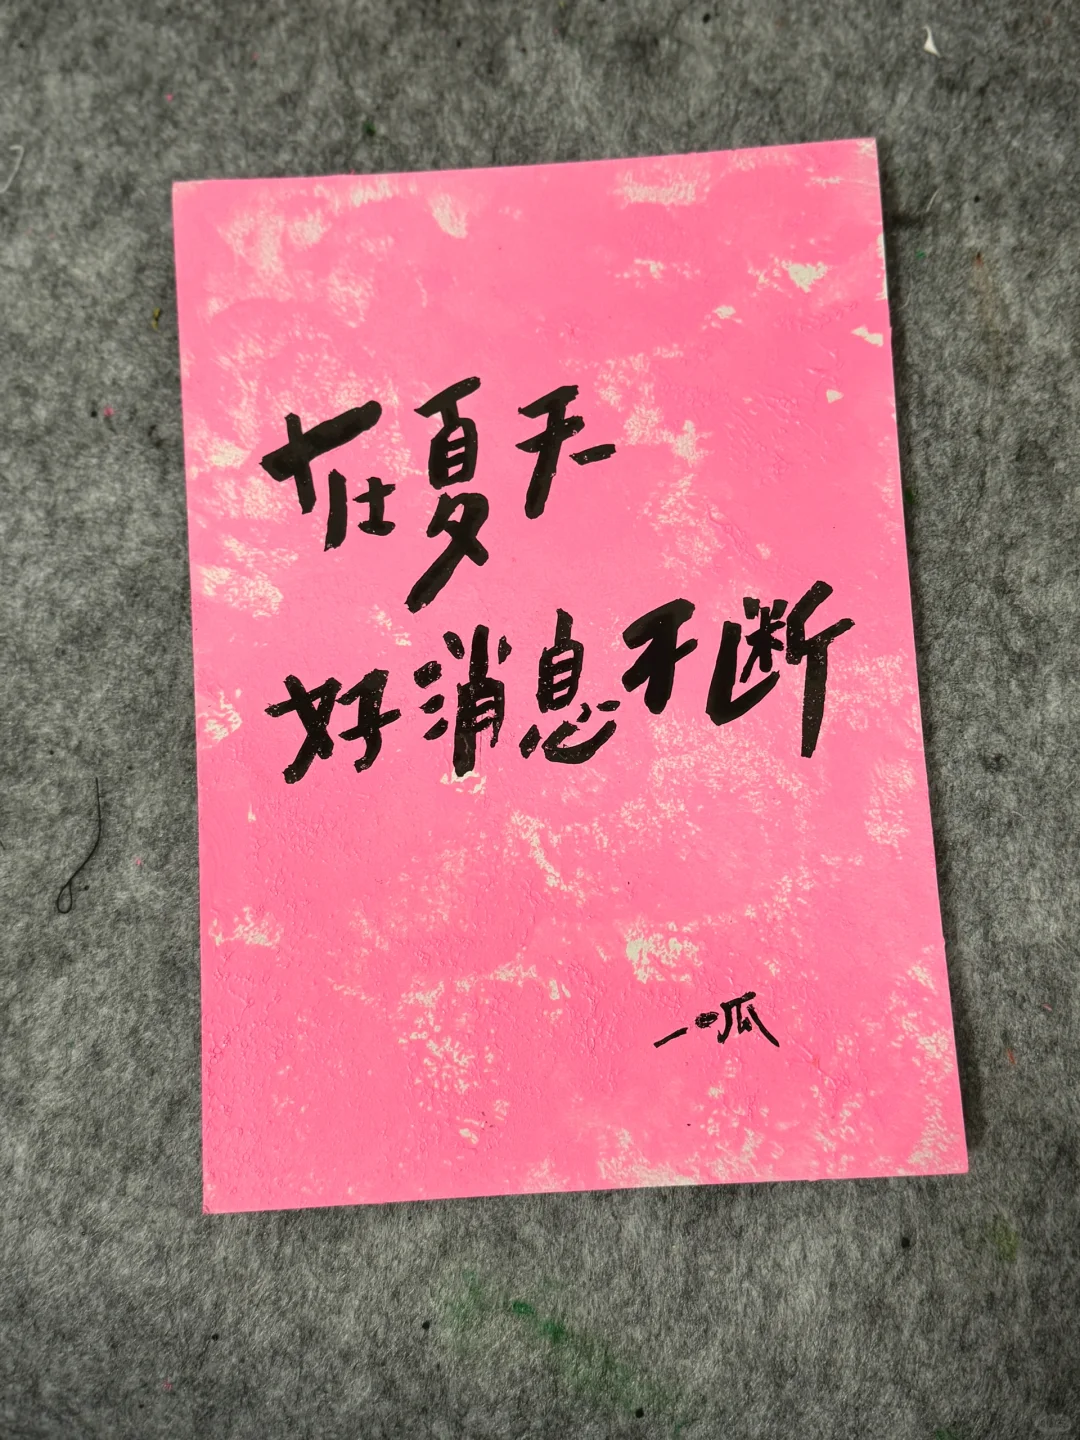 在夏天
好消息不断
一呱